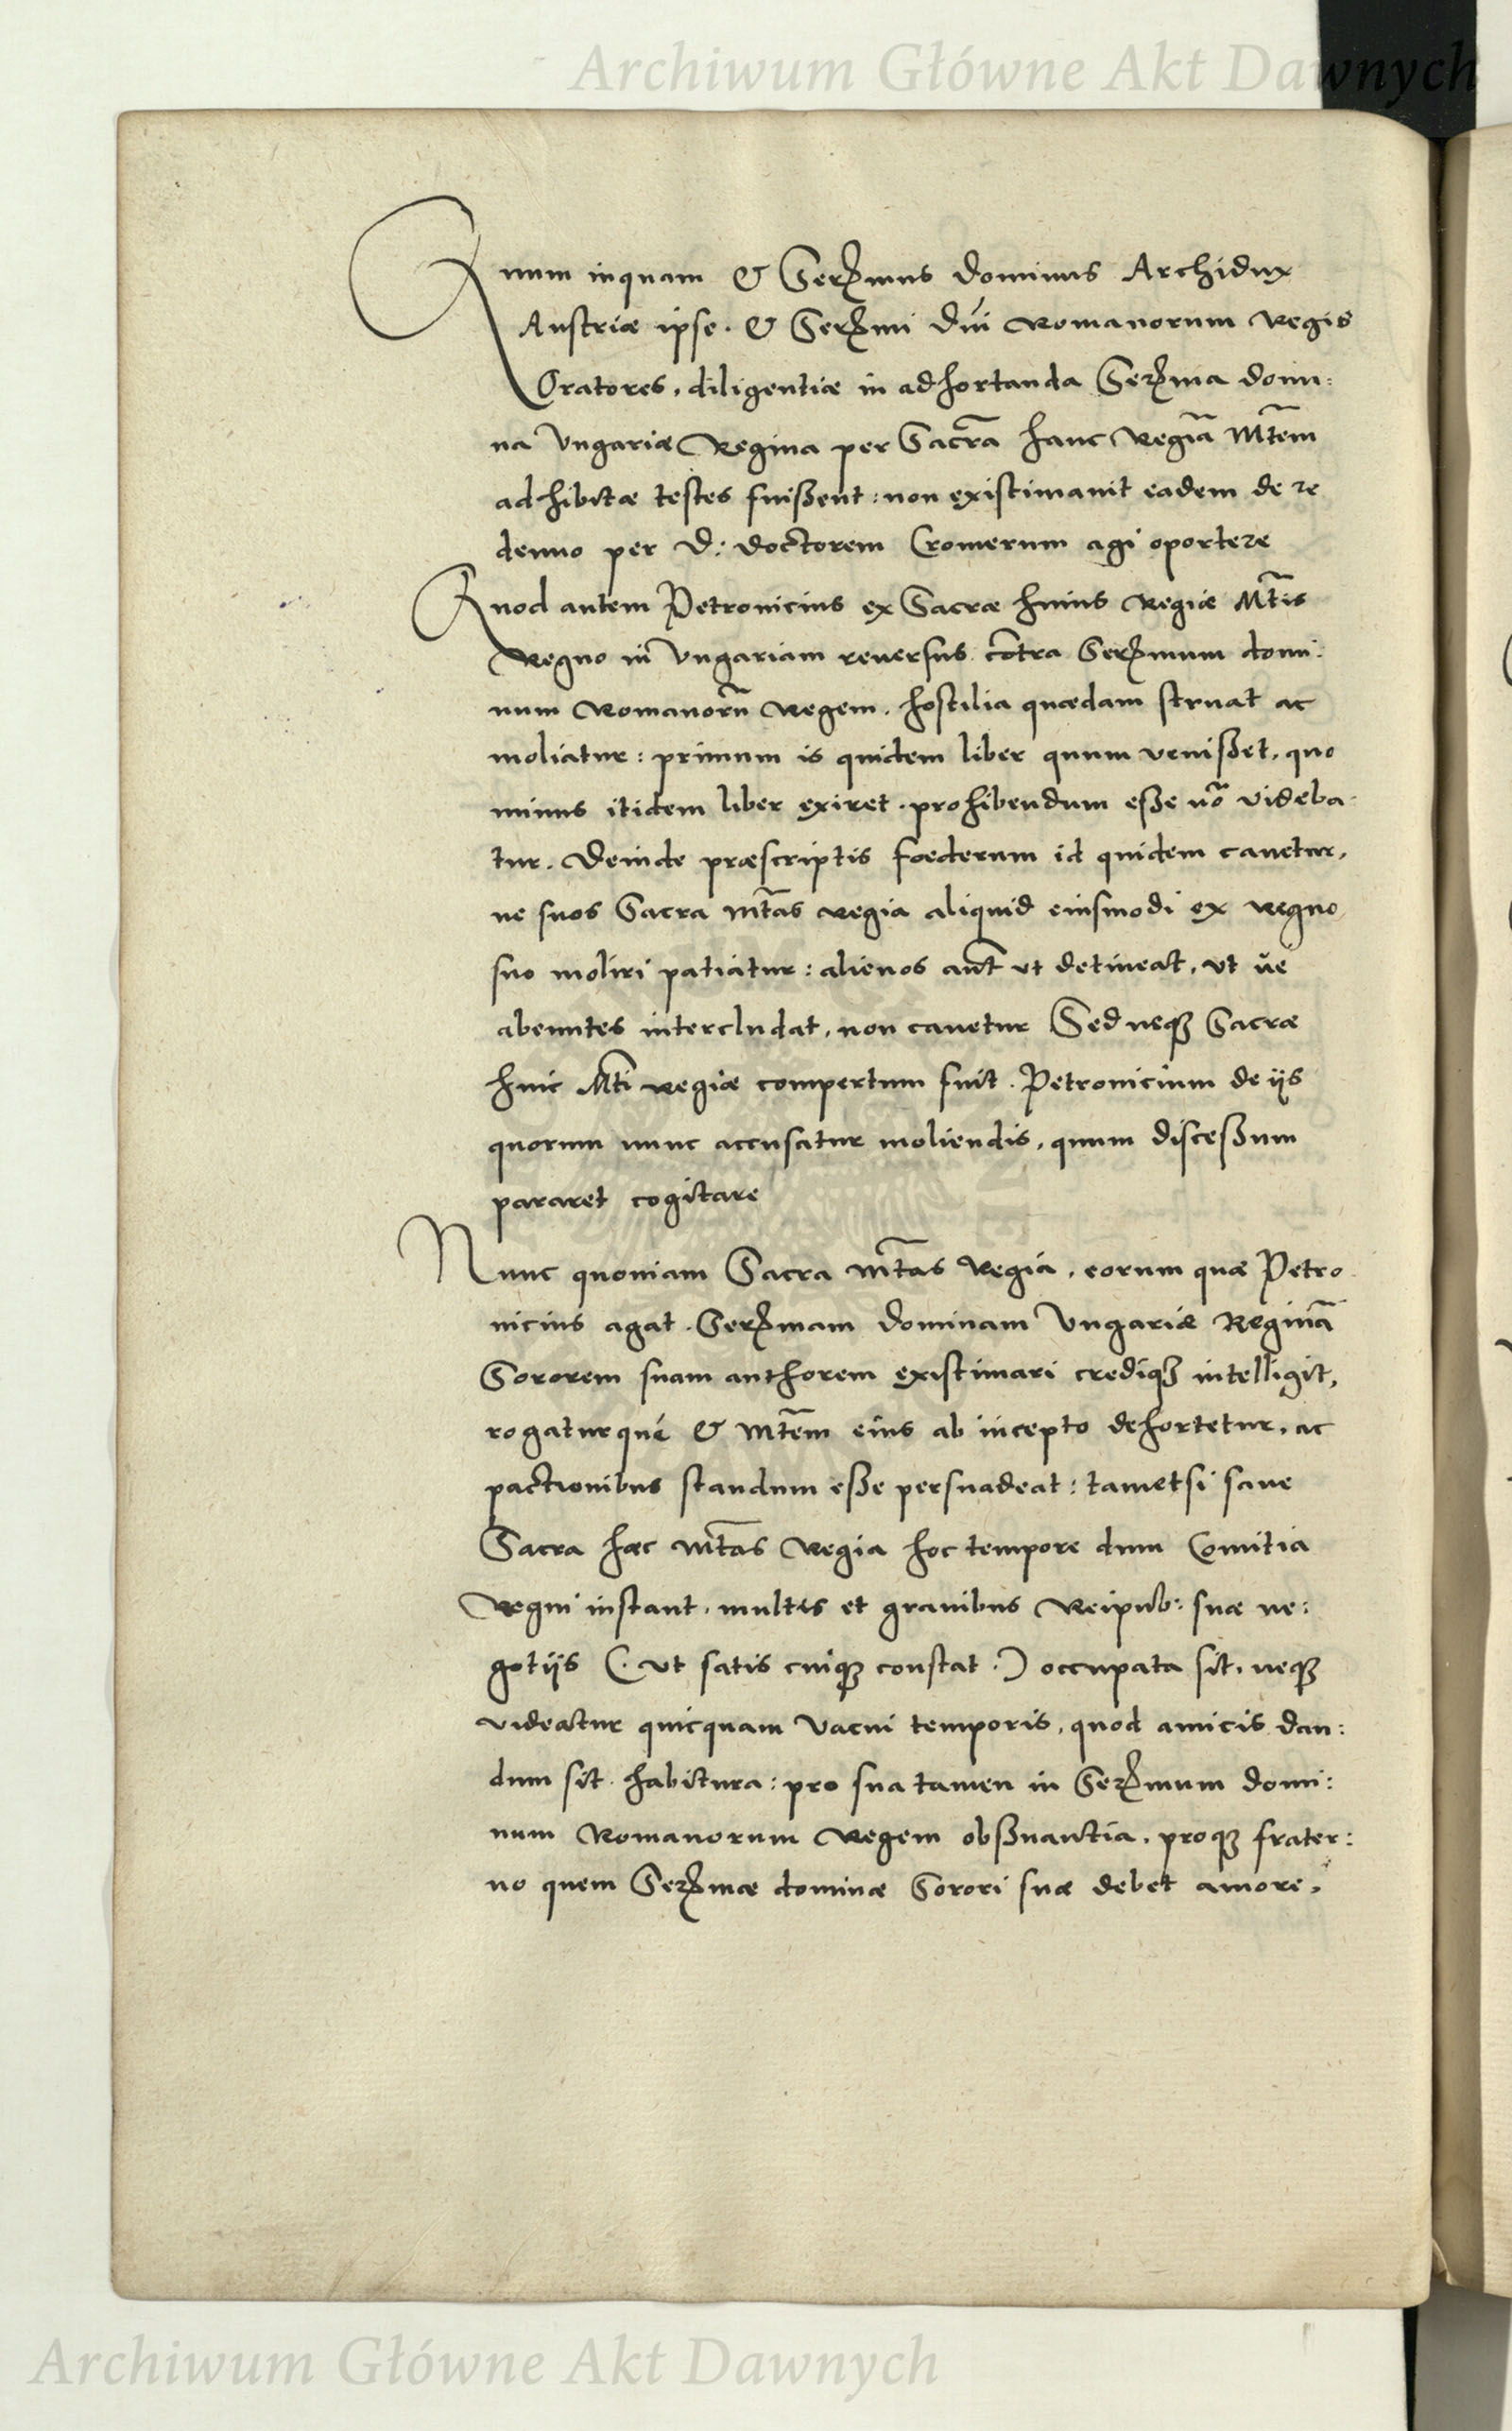 Archiwum Główne Akt Dawnych
Quum inquam & Serēmus Dominus Archidux
Austriæ ipse. & Serēmi Dn̄i Romanorum Regis
Oratores, diligentiæ in adhortanda Serēma domi:
na Vngariæ Regina per Sacrā hanc Regiā Mtēm
adhibitæ testes fuißent: non existimauit eadem de re
denuo per D: doctorem Cromerum agi oportere
Quod autem Petrouicius ex Sacræ huius Regiæ Mt̄is
Regno in Vngariam reuersus cōtra Serēmum domi:
num Romanorū Regem, hostilia quædam struat ac
moliatur: primum is quidem liber quum venißet, quo
minus itidem liber exiret. prohibendum eße nō videba-
tur. Deinde præscriptis foederum id quidem cauetur,
ne suos Sacra Mt̄as Regia aliquid eiusmodi ex Regno
suo moliri patiatur: alienos aūt vt detineat, vt ūe
abeuntes intercludat, non cauetur Sed neqꝫ Sacræ
huic Mt̄i Regiæ compertum fuit. Petrouicium de ijs
quorum nunc accusatur moliendis, quum disceßum
pararet cogitare
Nunc quoniam Sacra Mt̄as Regia, eorum quæ Petro
uicius agat. Serēmam Dominam Vngariæ Reginā
Sororem suam authorem existimari crediqꝫ intelligit,
rogaturqué & Mtēm eius ab incepto dehortetur, ac
pactionibus standum eße persuadeat: tametsi sane
Sacra hæc Mt̄as Regia hoc tempore dum Comitia
Regni instant, multis et grauibus Reipub: suæ ne:
gotijs (. vt satis cuiqꝫ constat .) occupata sit, neqꝫ
videatur quicquam vacui temporis, quod amicis dan:
dum sit habitura: pro sua tamen in Serēmum domi:
num Romanorum Regem obßuantia, proqꝫ frater:
no quem Serēmæ dominæ Sorori suæ debet amore,
Archiwum Główne Akt Dawnych